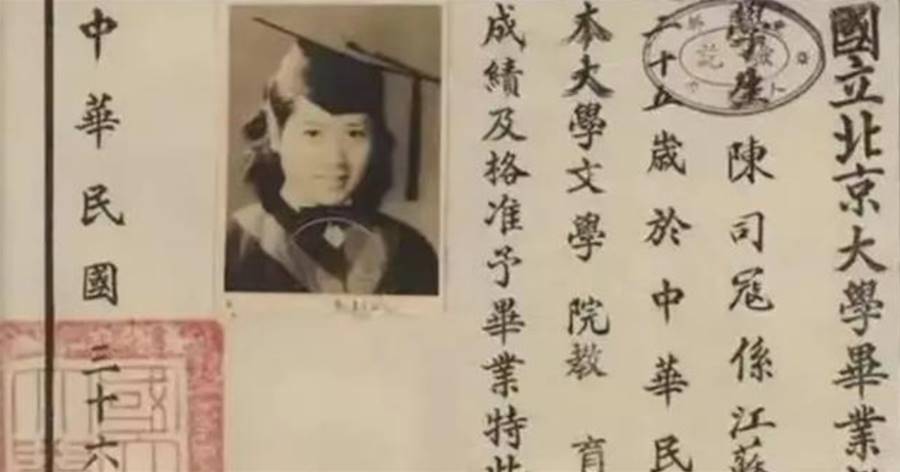 國立北京大學畢業
學生 陳司冦係江蘇
二十五歲於中華民
本大學文學 院教 育
成績及格准予畢業特此
中華民國三十六